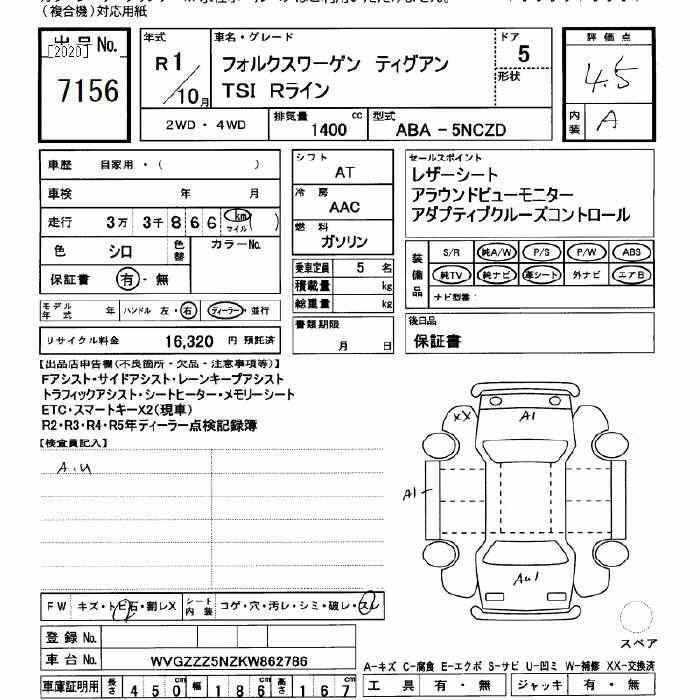 （複合機）対応用紙
出品No.
[2020]
7156
年式
R1/10月
車名・グレード
フォルクスワーゲン ティグアン
TSI Rライン
ドア
5
形状
2WD・4WD
排気量 1400 cc
型式 ABA - 5NCZD
評価点
4.5
内装 A
車歴 自家用・( )
車検 年 月
走行 3万 3千 8 6 6 km マイル ( )
色 シロ
色替
カラーNo.
保証書 有・無
モデル年式 年
ハンドル 左・右
ディーラー・並行
リサイクル料金 16,320 円 預託済
シフト
AT
冷房
AAC
燃料
ガソリン
乗車定員 5 名
積載量 kg
総重量 kg
書類期限
月 日
セールスポイント
レザーシート
アラウンドビューモニター
アダプティブクルーズコントロール
装備品
S/R 純A/W P/S P/W ABS
純TV 純ナビ 革シート 外ナビ エアB
ナビ型番：
後日品
保証書
【出品店申告欄(不良箇所・欠品・注意事項等)】
Fアシスト・サイドアシスト・レーンキープアシスト
トラフィックアシスト・シートヒーター・メモリーシート
ETC・スマートキーX2(現車)
R2・R3・R4・R5年ディーラー点検記録簿
【検査員記入】
A.U
XX
A1
A1
AU1
FW キズ・トビ石・割レX
シート内装 コゲ・穴・汚レ・シミ・破レ・スレ
スペア
登録No.
車台No. WVGZZZ5NZKW862786
A-キズ C-腐食 E-エクボ S-サビ U-凹ミ W-補修 XX-交換済
車庫証明用 長さ 450cm 幅 186cm 高さ 167cm
工具 有・無 ジャッキ 有・無